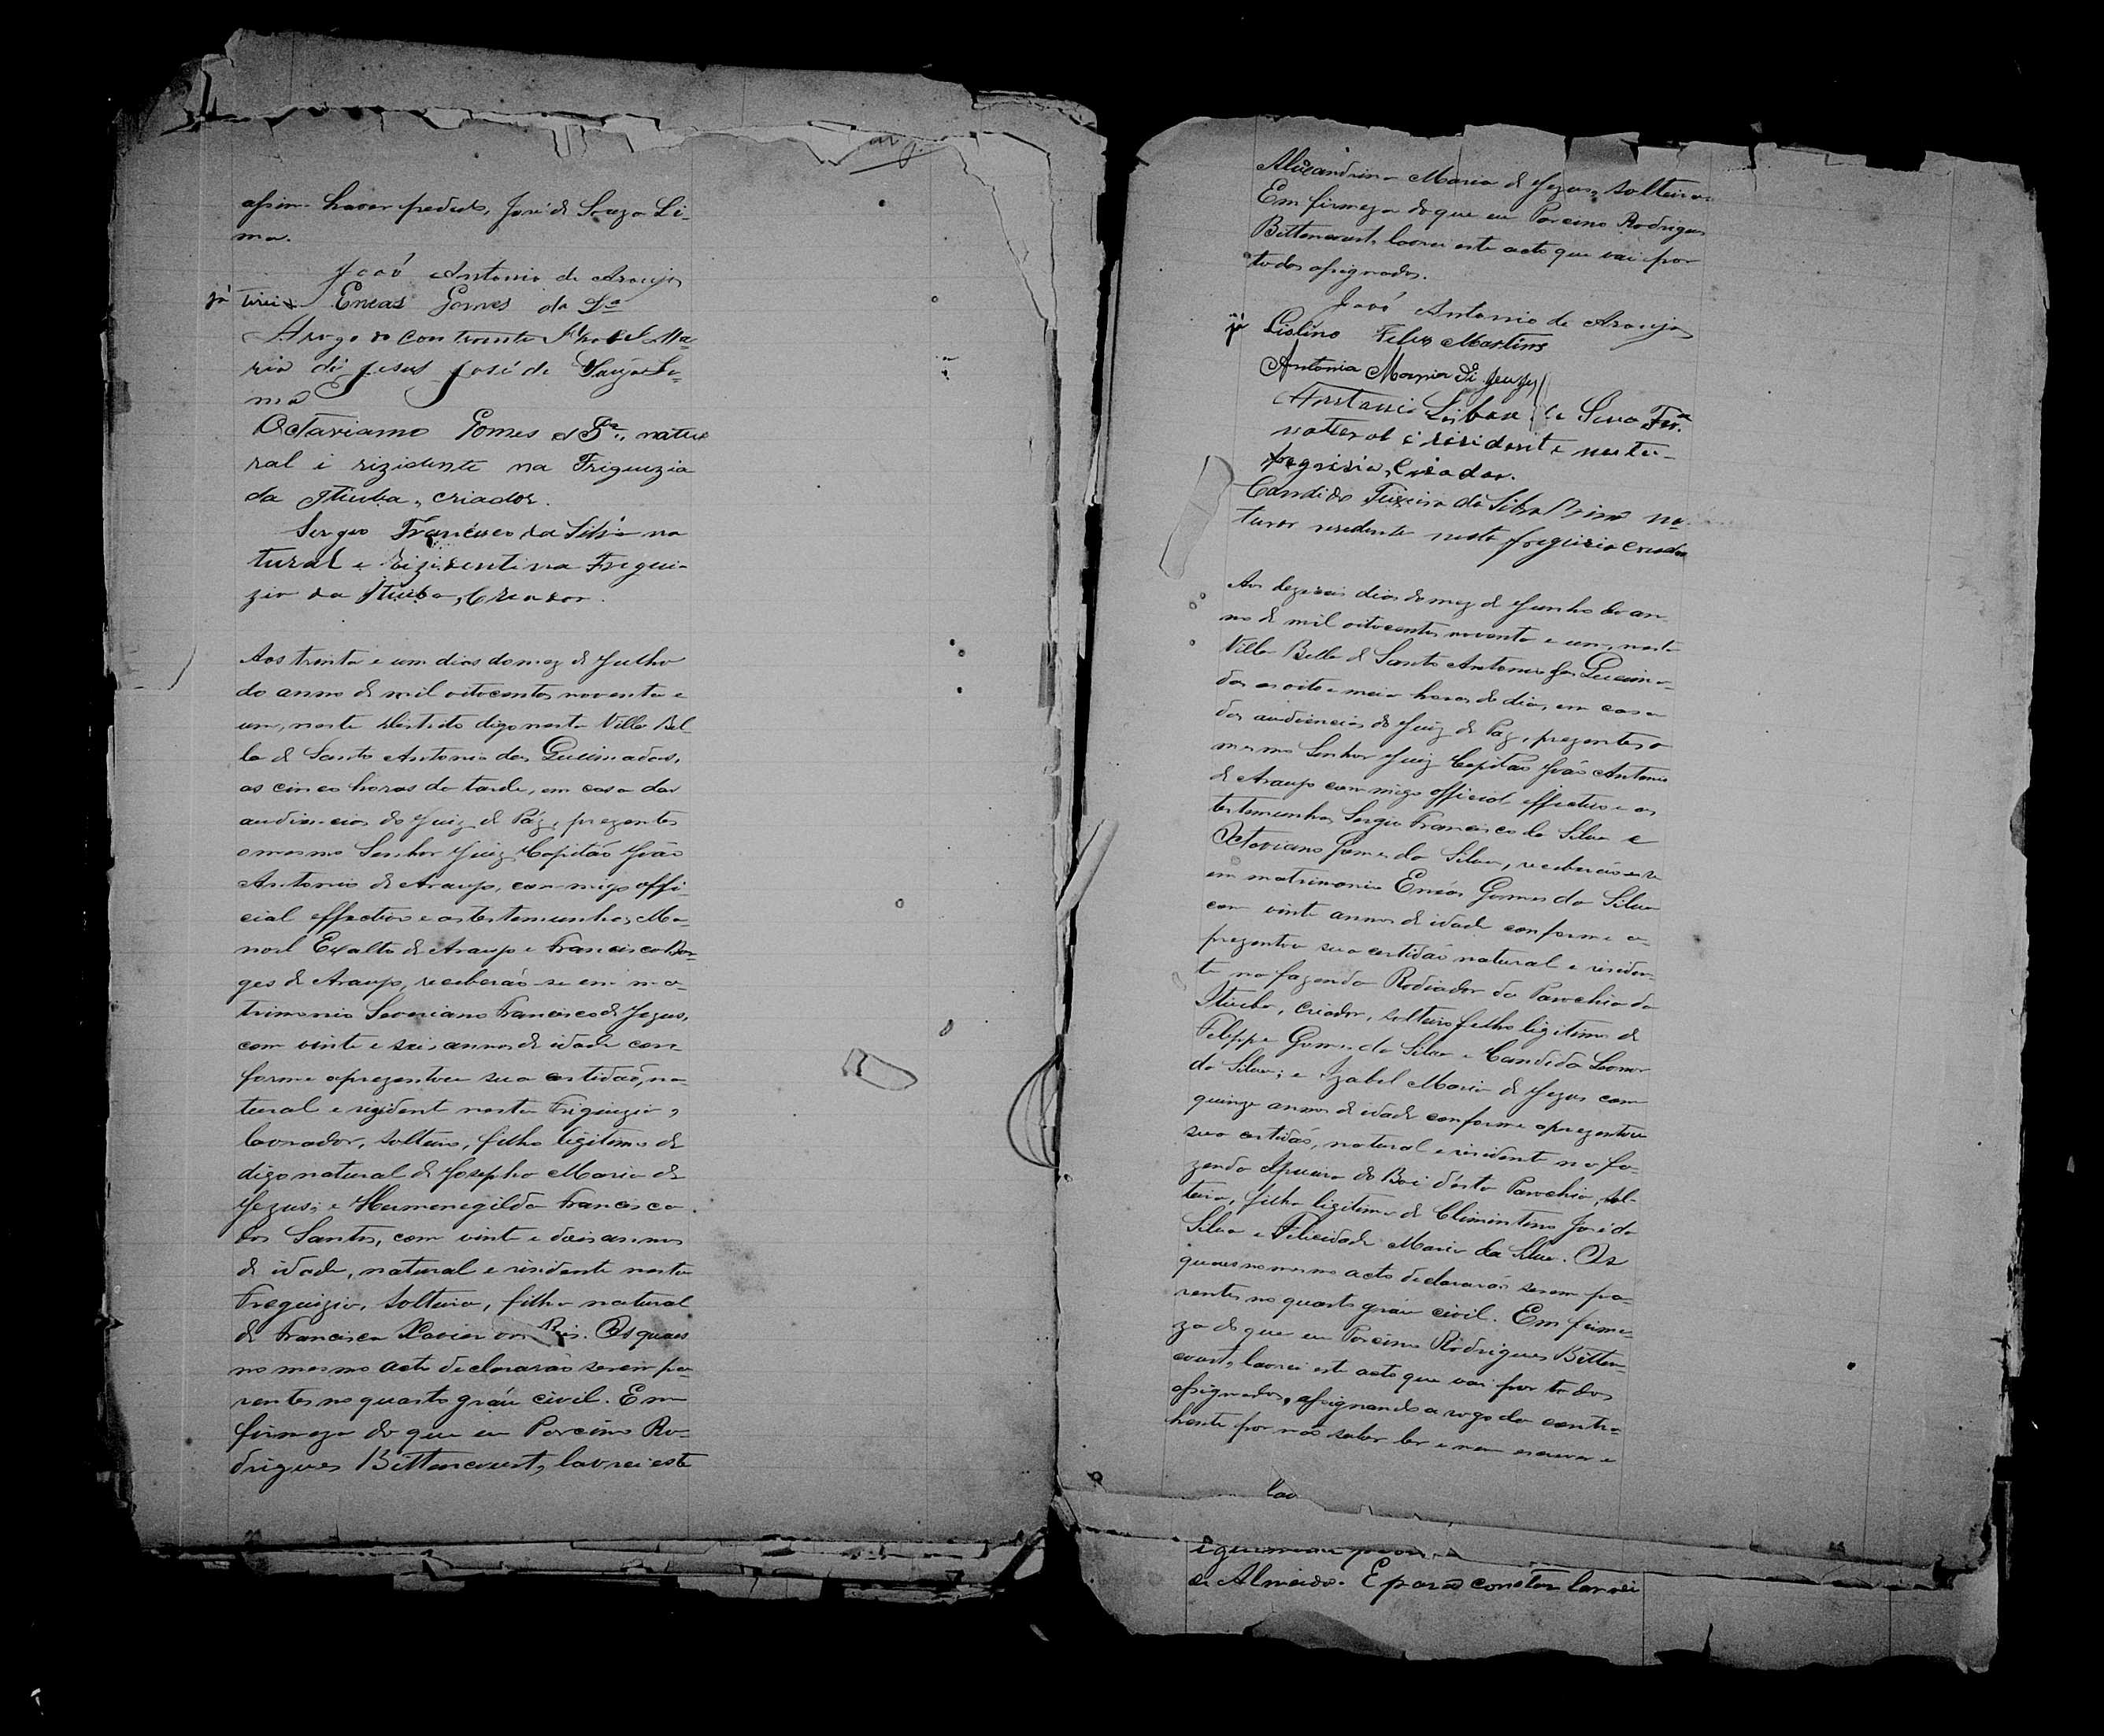 assim haver pedido, José de Souza Li-
ma.
João Antonio de Araujo
já tirei Eneas Gomes da Sa
A rogo da contraente Izabel Ma-
ria di Jesus José de Souza Li-
ma
Octaviano Gomes d Sa., natu
ral i rizidente na Friguizia
da Itiuba, criador.
Sergio Francisco da Silva na
tural e rizidenti na Fregui-
zia da Itiuba, Criador.
Aos trinta e um dias do mez de Julho
do anno de mil oitocentos noventa e
um, neste Destrito digo nesta Villa Bel-
la de Santo Antonio das Queimadas,
as cinco horas da tarde, em casa das
audiencias do Juiz de Páz, prezentes
o mesmo Senhor Juiz Capitão João
Antonio de Araujo, commigo offi-
cial effectivo e as testemunhas Ma-
noel Exalto de Araujo e Francisco Bor-
ges de Araujo, receberão-se em ma-
trimonio Severiano Francisco de Jezus,
com vinte e seis annos de idade con-
forme aprezentou sua certidão, na-
tural e rizident nesta Friguizia,
lavrador, solteiro, filho ligitimo de
digo natural de Josepha Maria de
Jezus; e Hermenegilda Francisca
dos Santos, com vinte e dois annos
de idade, natural e rezidente nesta
Freguizia, solteira, filha natural
de Francisca Xavier dos Reis. Os quaes
no mesmo acto declararão serem pa-
rentes no quarto gráu civil. Em
firmeza do que eu Porcino Ro-
drigues Bittencourt, lavrei este
Alixandrina Maria de Jezus, solteira.
Em firmeza do que eu Porcino Rodrigues
Bittencourt, lavrei este acto que vai por
todos assignados.
João Antonio de Araujo
já Lislino Felis Martins
Antonia Maria di Jezus
Lisboa da Silva
natural i risidente nesta
fregisia, Criador.
Candido Teixeira da Silva Primo na-
tural residente nesta freguisia criador
Aos dezeseis dias do mez de Junho do an-
no de mil oitocentos noventa e um, nesta
Villa Bella de Santo Antonio das Queima-
das as oito e meia horas do dia, em casa
das audiencias do Juiz de Paz, prezentes o
mesmo Senhor Juiz Capitão João Antonio
de Araujo commigo official effectivo e as
testemunhas Sergio Francisco da Silva e
Octaviano Gomes da Silva, receberão-se
em matrimonio Enéas Gomes da Silva
com vinte annos de idade conforme a-
prezentou sua certidão natural e residen-
te na fazenda Rodeador da Parochia da
Itiuba, criador, solteiro filho ligitimo de
Felippe Gomes da Silva e Candida Leonor
da Silva; e Izabel Maria de Jezus com
quinze annos de idade conforme aprezentou
sua certidão, natural e residente na fa-
zenda Ipueira do Boi désta Parochia, sol-
teira, filha ligitima de Climintino José da
Silva e Felicidade Maria da Silva. Os
quaes no mesmo acto declararão serem pa-
rentes no quarto gráu civil. Em firme-
za do que eu Porcino Rodrigues Bitten-
court, lavrei este acto que vai por todos
assignados, assignando a rogo da contra-
hente por não saber ler e nem escrever e
de Almeida. E para constar lavrei